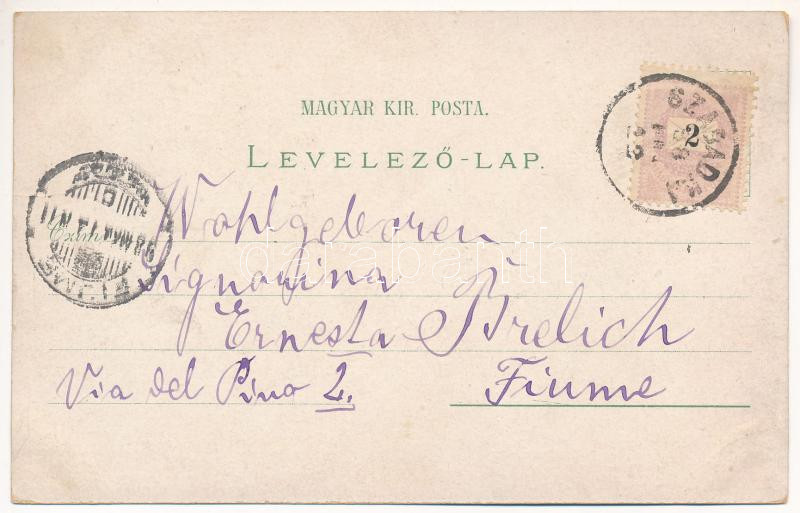 MAGYAR KIR. POSTA.
LEVELEZŐ-LAP.
SZABADKA
2
FIUME
Wohlgeboren
Signorina
Ernesta Brelich
Via del Pino 2.
Fiume
darabanth